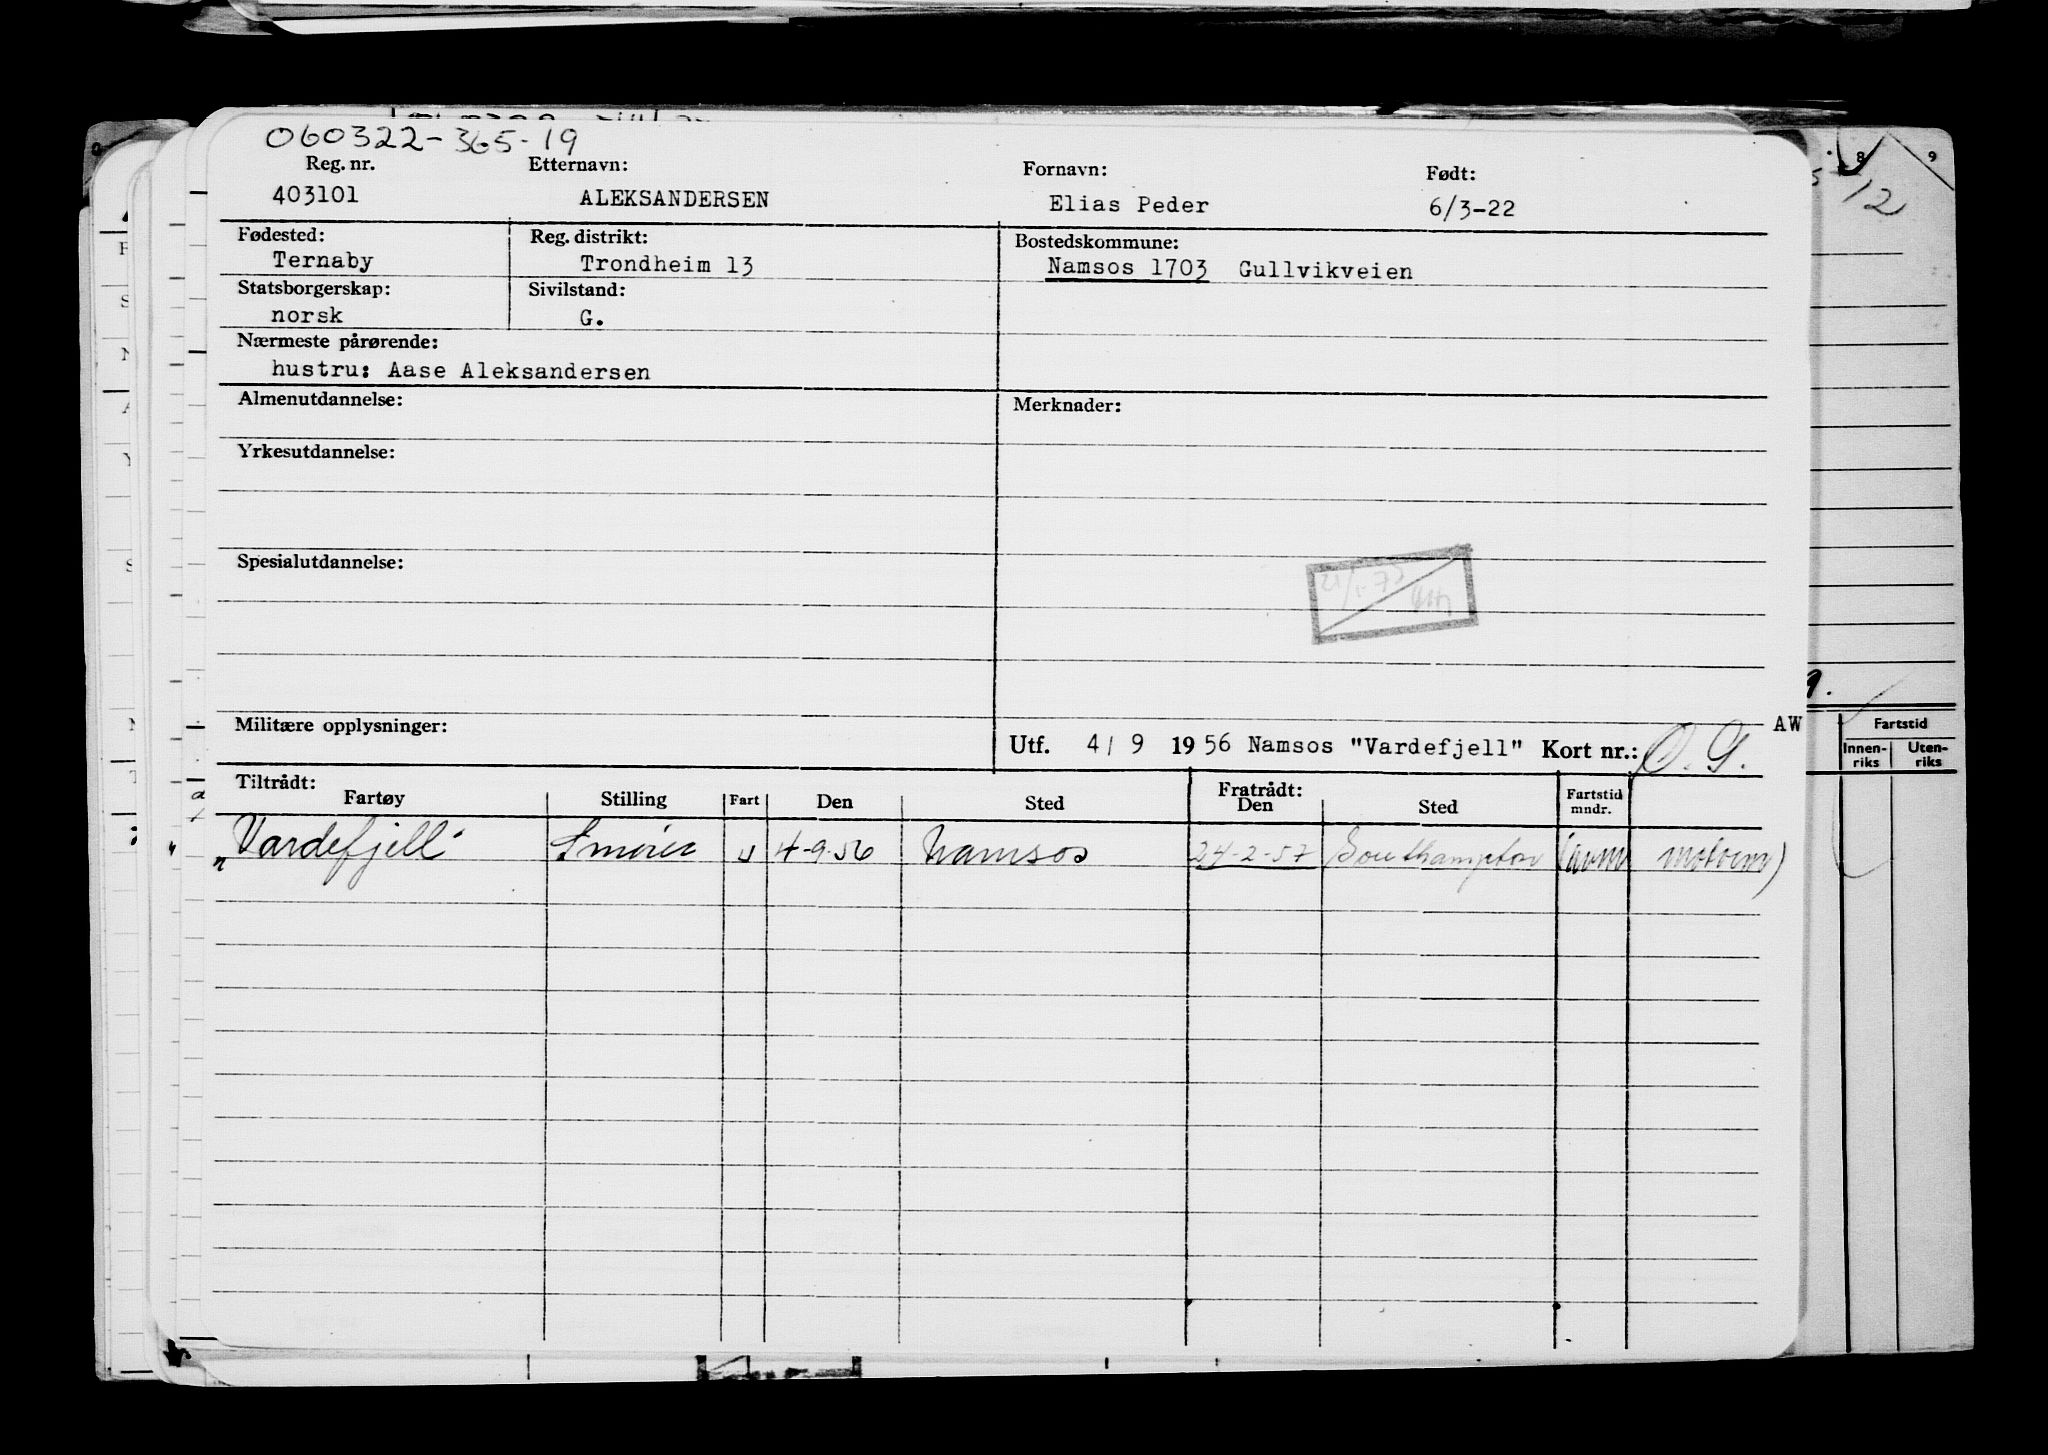 060322-365-19
Reg. nr. Etternavn: Fornavn: Født:
403101 ALEKSANDERSEN Elias Peder 6/3-22
Fødested: Reg. distrikt: Bostedskommune:
Ternaby Trondheim 13 Namsos 1703 Gullvikveien
Statsborgerskap: Sivilstand:
norsk G.
Nærmeste pårørende:
hustru: Aase Aleksandersen
Almenutdannelse: Merknader:
Yrkesutdannelse:
Spesialutdannelse:
Militære opplysninger:
AW
Utf. 4/ 9 1956 Namsos "Vardefjell" Kort nr.: O. G.
Tiltrådt: Fratrådt:
Fartøy Stilling Fart Den Sted Den Sted Fartstid mndr.
"Vardefjell" Smører U 4-9-56 Namsos 24-2-57 Southampton
8 9
12
Fartstid
Innen-riks Uten-riks